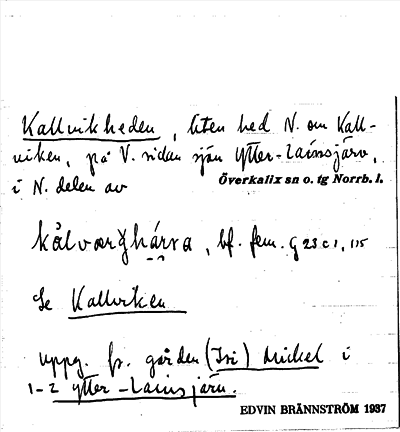 Kallvikheden, liten hed N. om Kall-
viken, på V. sidan sjön Ytter-Lainsjärv,
i N. delen av
Överkalix sn o. tg Norrb. l.
bf. fem. G 23 c 1, 115
Se Kallviken
uppg. fr. gården (Isi) Mickel i
1-2 Ytter-Lainsjärv.
EDVIN BRÄNNSTRÖM 1937